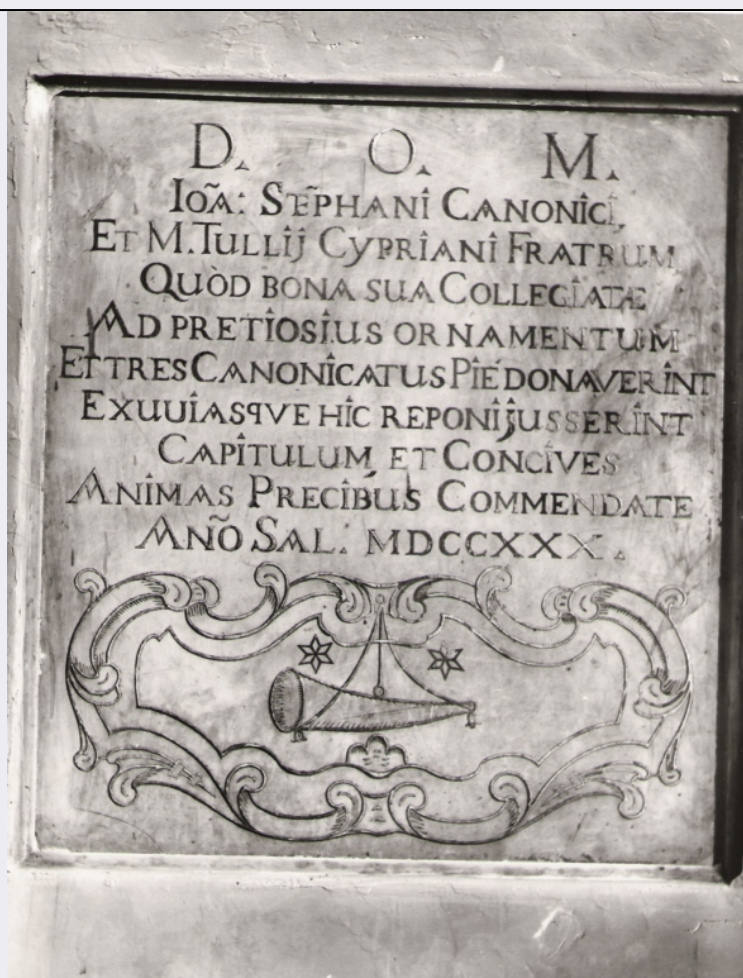 D. O. M.
IOÃ: STEP̃HANI CANONICI,
ET M. TULLIJ CYPRIANI FRATRUM
QUÒD BONA SUA COLLEGIATÆ
AD PRETIOSIUS ORNAMENTUM
ET TRES CANONICATUS PIÈ DONAVERINT
EXUUIASQVE HIC REPONI JUSSERINT
CAPITULUM ET CONCIVES
ANIMAS PRECIBUS COMMENDATE
AÑO SAL: MDCCXXX.